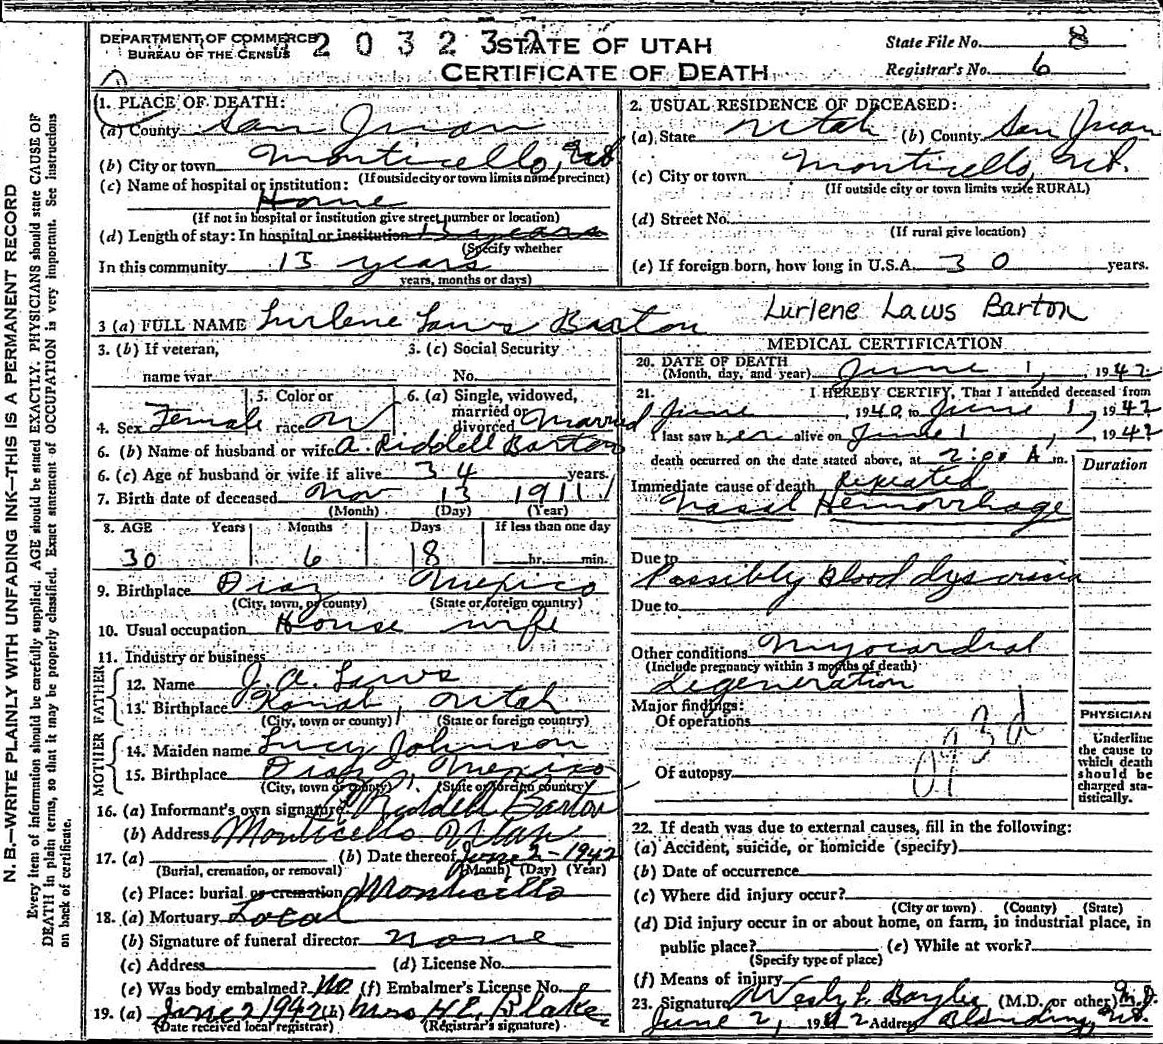 DEPARTMENT OF COMMERCE
BUREAU OF THE CENSUS
2 0 3 2 3
STATE OF UTAH
CERTIFICATE OF DEATH
State File No. 8
Registrar's No. 6
N. B.—WRITE PLAINLY WITH UNFADING INK—THIS IS A PERMANENT RECORD
Every item of information should be carefully supplied. AGE should be stated EXACTLY. PHYSICIANS should state CAUSE OF
DEATH in plain terms, so that it may be properly classified. Exact statement of OCCUPATION is very important. See instructions
on back of certificate.
1. PLACE OF DEATH:
(a) County San Juan
(b) City or town Monticello, Ut.
(If outside city or town limits name precinct)
(c) Name of hospital or institution:
Home
(If not in hospital or institution give street number or location)
(d) Length of stay: In hospital or institution 13 years
(Specify whether
In this community 13 years
years, months or days)
2. USUAL RESIDENCE OF DECEASED:
(a) State Utah (b) County San Juan
(c) City or town Monticello, Ut.
(If outside city or town limits write RURAL)
(d) Street No.
(If rural give location)
(e) If foreign born, how long in U.S.A. 30 years.
3 (a) FULL NAME Lurlene Laws Barton
Lurlene Laws Barton
3. (b) If veteran,
name war
3. (c) Social Security
No.
4. Sex Female
5. Color or
race W
6. (a) Single, widowed,
married or
divorced Married
6. (b) Name of husband or wife A. Riddell Barton
6. (c) Age of husband or wife if alive 34 years.
7. Birth date of deceased Nov 13 1911
(Month) (Day) (Year)
8. AGE Years Months Days If less than one day
30 6 18 hr. min.
9. Birthplace Diaz Mexico
(City, town, or county) (State or foreign country)
10. Usual occupation House wife
11. Industry or business
FATHER
12. Name J. A. Laws
13. Birthplace Kanab, Utah
(City, town or county) (State or foreign country)
MOTHER
14. Maiden name Lucy Johnson
15. Birthplace Diaz, Mexico
(City, town or county) (State or foreign country)
16. (a) Informant's own signature Riddell Barton
(b) Address Monticello Utah
17. (a) (b) Date thereof June 2-1942
(Burial, cremation, or removal) (Month) (Day) (Year)
(c) Place: burial or cremation Monticello
18. (a) Mortuary Local
(b) Signature of funeral director None
(c) Address (d) License No.
(e) Was body embalmed? No (f) Embalmer's License No.
19. (a) June 2 1942 (b) Mrs H E Blake
(Date received local registrar) (Registrar's signature)
MEDICAL CERTIFICATION
20. DATE OF DEATH
(Month, day, and year) June 1, 1942
21. I HEREBY CERTIFY, That I attended deceased from
June, 1940, to June 1, 1942
I last saw her alive on June 1, 1942
death occurred on the date stated above, at 2:00 A m.
Duration
Immediate cause of death Repeated
Nasal Hemorrhage
Due to
Possibly Blood dyscrasia
Due to
Other conditions Myocardial
(Include pregnancy within 3 months of death)
degeneration
Major findings:
Of operations
Of autopsy
PHYSICIAN
Underline
the cause to
which death
should be
charged sta-
tistically.
22. If death was due to external causes, fill in the following:
(a) Accident, suicide, or homicide (specify)
(b) Date of occurrence
(c) Where did injury occur?
(City or town) (County) (State)
(d) Did injury occur in or about home, on farm, in industrial place, in
public place? (e) While at work?
(Specify type of place)
(f) Means of injury
23. Signature (M.D. or other) M.D.
June 2, 1942 Address Blanding, Ut.